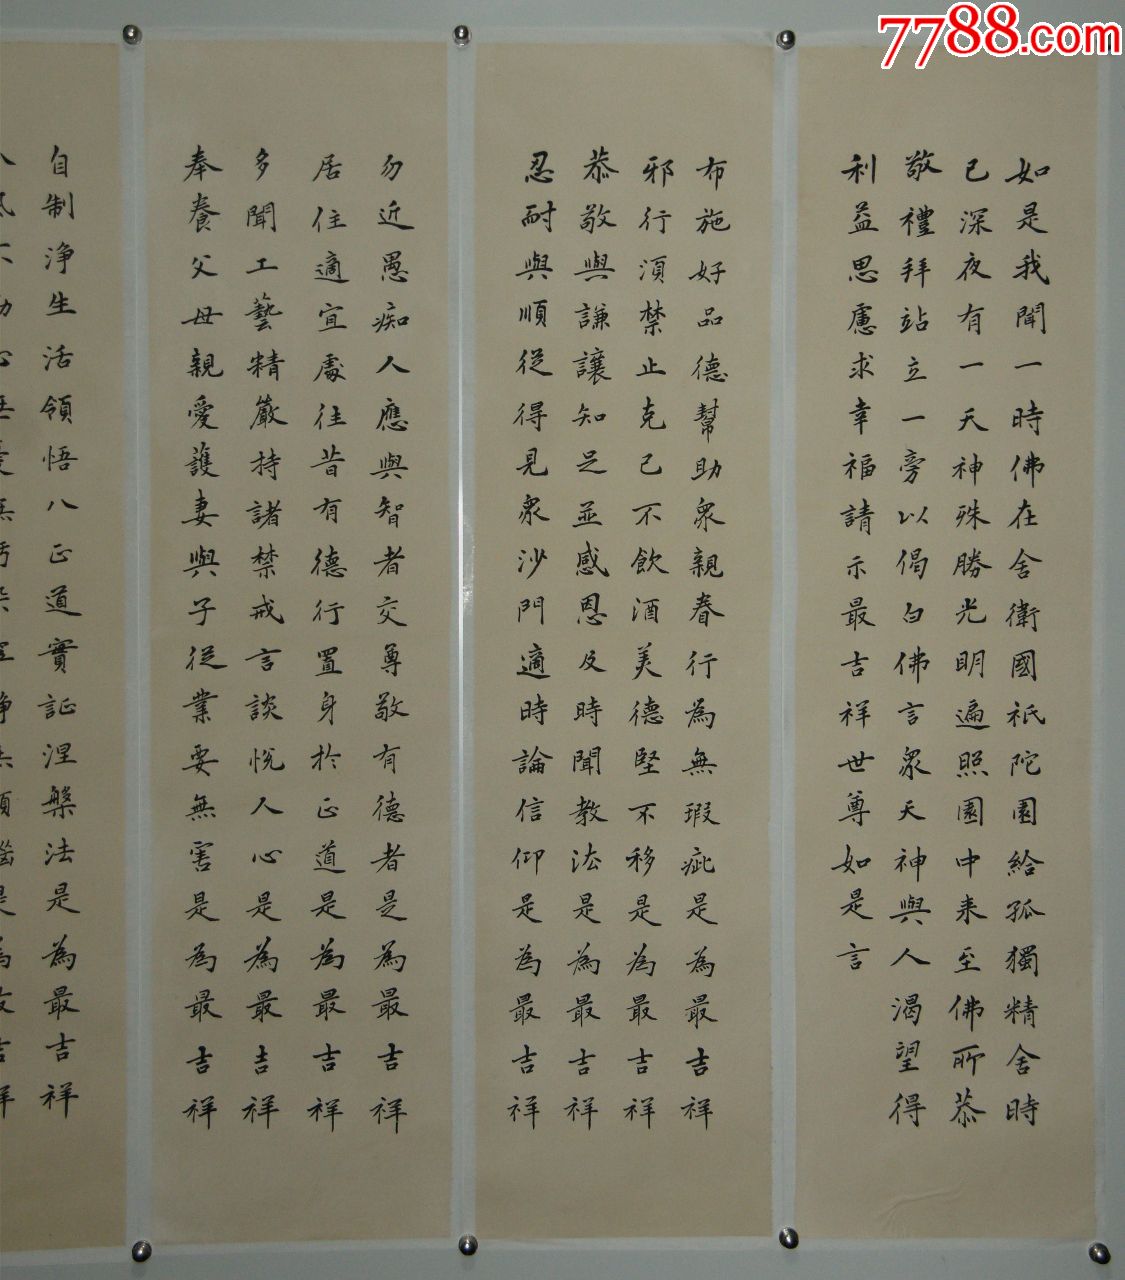 7788.com
如是我聞一時佛在舍衛國祇陀園給孤獨精舍時
已深夜有一天神殊勝光明遍照園中来至佛所恭
敬禮拜站立一旁以偈白佛言衆天神與人渴望得
利益思慮求幸福請示最吉祥世尊如是言
布施好品德幫助衆親眷行為無瑕疵是為最吉祥
邪行須禁止克己不飲酒美德堅不移是為最吉祥
恭敬與謙讓知足並感恩及時聞教法是為最吉祥
忍耐與順從得見衆沙門適時論信仰是為最吉祥
勿近愚痴人應與智者交尊敬有德者是為最吉祥
居住適宜處往昔有德行置身於正道是為最吉祥
多聞工藝精嚴持諸禁戒言談悅人心是為最吉祥
奉養父母親愛護妻與子從業要無害是為最吉祥
自制淨生活領悟八正道實証涅槃法是為最吉祥